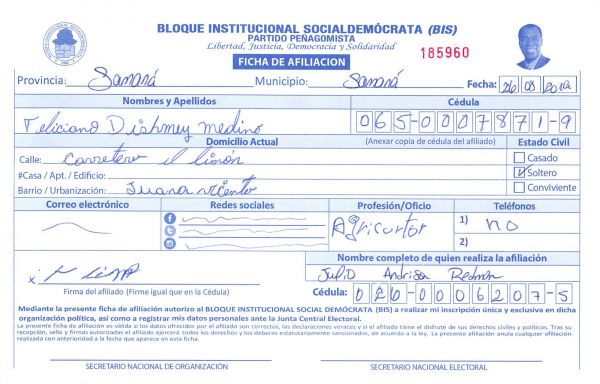 BLOQUE INSTITUCIONAL SOCIALDEMÓCRATA (BIS)
PARTIDO PEÑAGOMISTA
Libertad, Justicia, Democracia y Solidaridad
FICHA DE AFILIACION
185960
Provincia: Samaná Municipio: Samaná Fecha: 26 03
Nombres y Apellidos Cédula
Feliciano Dishmey Medino 065-0007871-9
Domicilio Actual (Anexar copia de cédula del afiliado) Estado Civil
Calle: Carretera el limón Casado
#Casa / Apt. / Edificio: Soltero
Barrio / Urbanización: Juana vicenta Conviviente
Correo electrónico Redes sociales Profesión/Oficio Teléfonos
Agricurtor 1) no
2)
Nombre completo de quien realiza la afiliación
x Julio Redman
Firma del afiliado (Firme igual que en la Cédula) Cédula: 026-0006207-5
Mediante la presente ficha de afiliación autorizo al BLOQUE INSTITUCIONAL SOCIAL DEMÓCRATA (BIS) a realizar mi inscripción única y exclusiva en dicha
organización política, así como a registrar mis datos personales ante la Junta Central Electoral.
La presente ficha de afiliación es válida si los datos ofrecidos por el afiliado son correctos, las declaraciones veraces y si el afiliado tiene el disfrute de sus derechos civiles y políticos. Tras su
recepción, sello y firmas autorizadas el afiliado ejercerá todos los derechos y los deberes estatutariamente sancionados, de acuerdo a la ley. La presente afiliación anula cualquier afiliación
realizada con anterioridad a la fecha que aparece en esta ficha.
SECRETARIO NACIONAL DE ORGANIZACIÓN SECRETARIO NACIONAL ELECTORAL